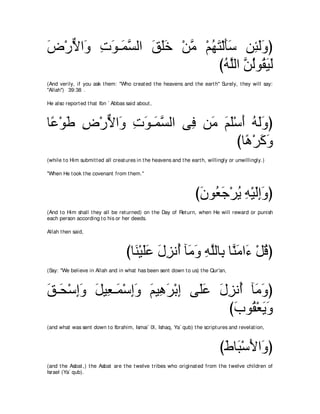 وَلَئِن سَأَلْتَهُمْ مَّنْ خَلَقَ السَّمَـوَتِ وَالاٌّرْضَ
لَيَقُولُنَّ اللَّهُ)
(And verily, if you ask them: "Who created the heavens and the earth" Surely, they will say:
"Allah") 39:38 .
He also reported that Ibn `Abbas said about,
(وَلَهُ أَسْلَمَ مَن فِى السَّمَـوَتِ وَالاٌّرْضِ طَوْعًا
وَكَرْهًا)
(while to Him submitted all creatures in the heavens and the earth, willingly or unwillingly.)
"When He took the covenant from them."
(وَإِلَيْهِ يُرْجَعُونَ)
(And to Him shall they all be returned) on the Day of Return, when He will reward or punish
each person according to his or her deeds.
Allah then said,
(قُلْ ءَامَنَّا بِاللَّهِ وَمَآ أُنزِلَ عَلَيْنَا)
(Say: "We believe in Allah and in what has been sent down to us) the Qur'an,
(وَمَآ أُنزِلَ عَلَى إِبْرَهِيمَ وَإِسْمَـعِيلَ وَإِسْحَـقَ
وَيَعْقُوبَ)
(and what was sent down to Ibrahim, Isma`il, Ishaq, Ya`qub) the scriptures and revelation,
(وَالأَسْبَاطِ)
(and the Asbat,) the Asbat are the twelve tribes who originated from the twelve children of
Israel (Ya`qub).